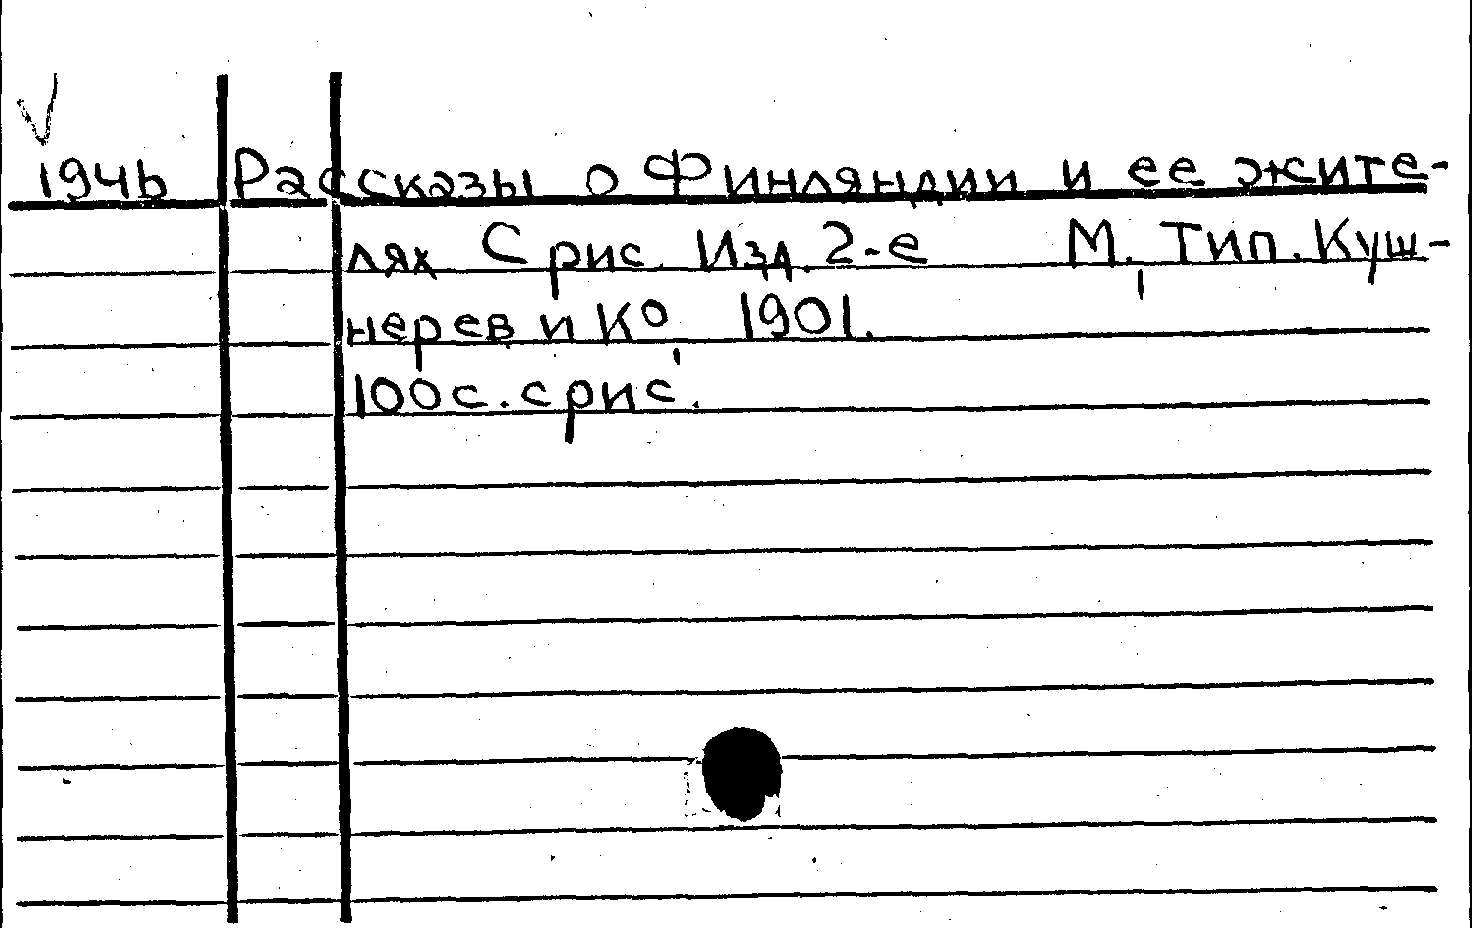 194b Рассказы о Финляндии и ее жите-
лях С рис. Изд. 2-е М., Тип. Куш-
нерев и К°, 1901.
100с. с рис.